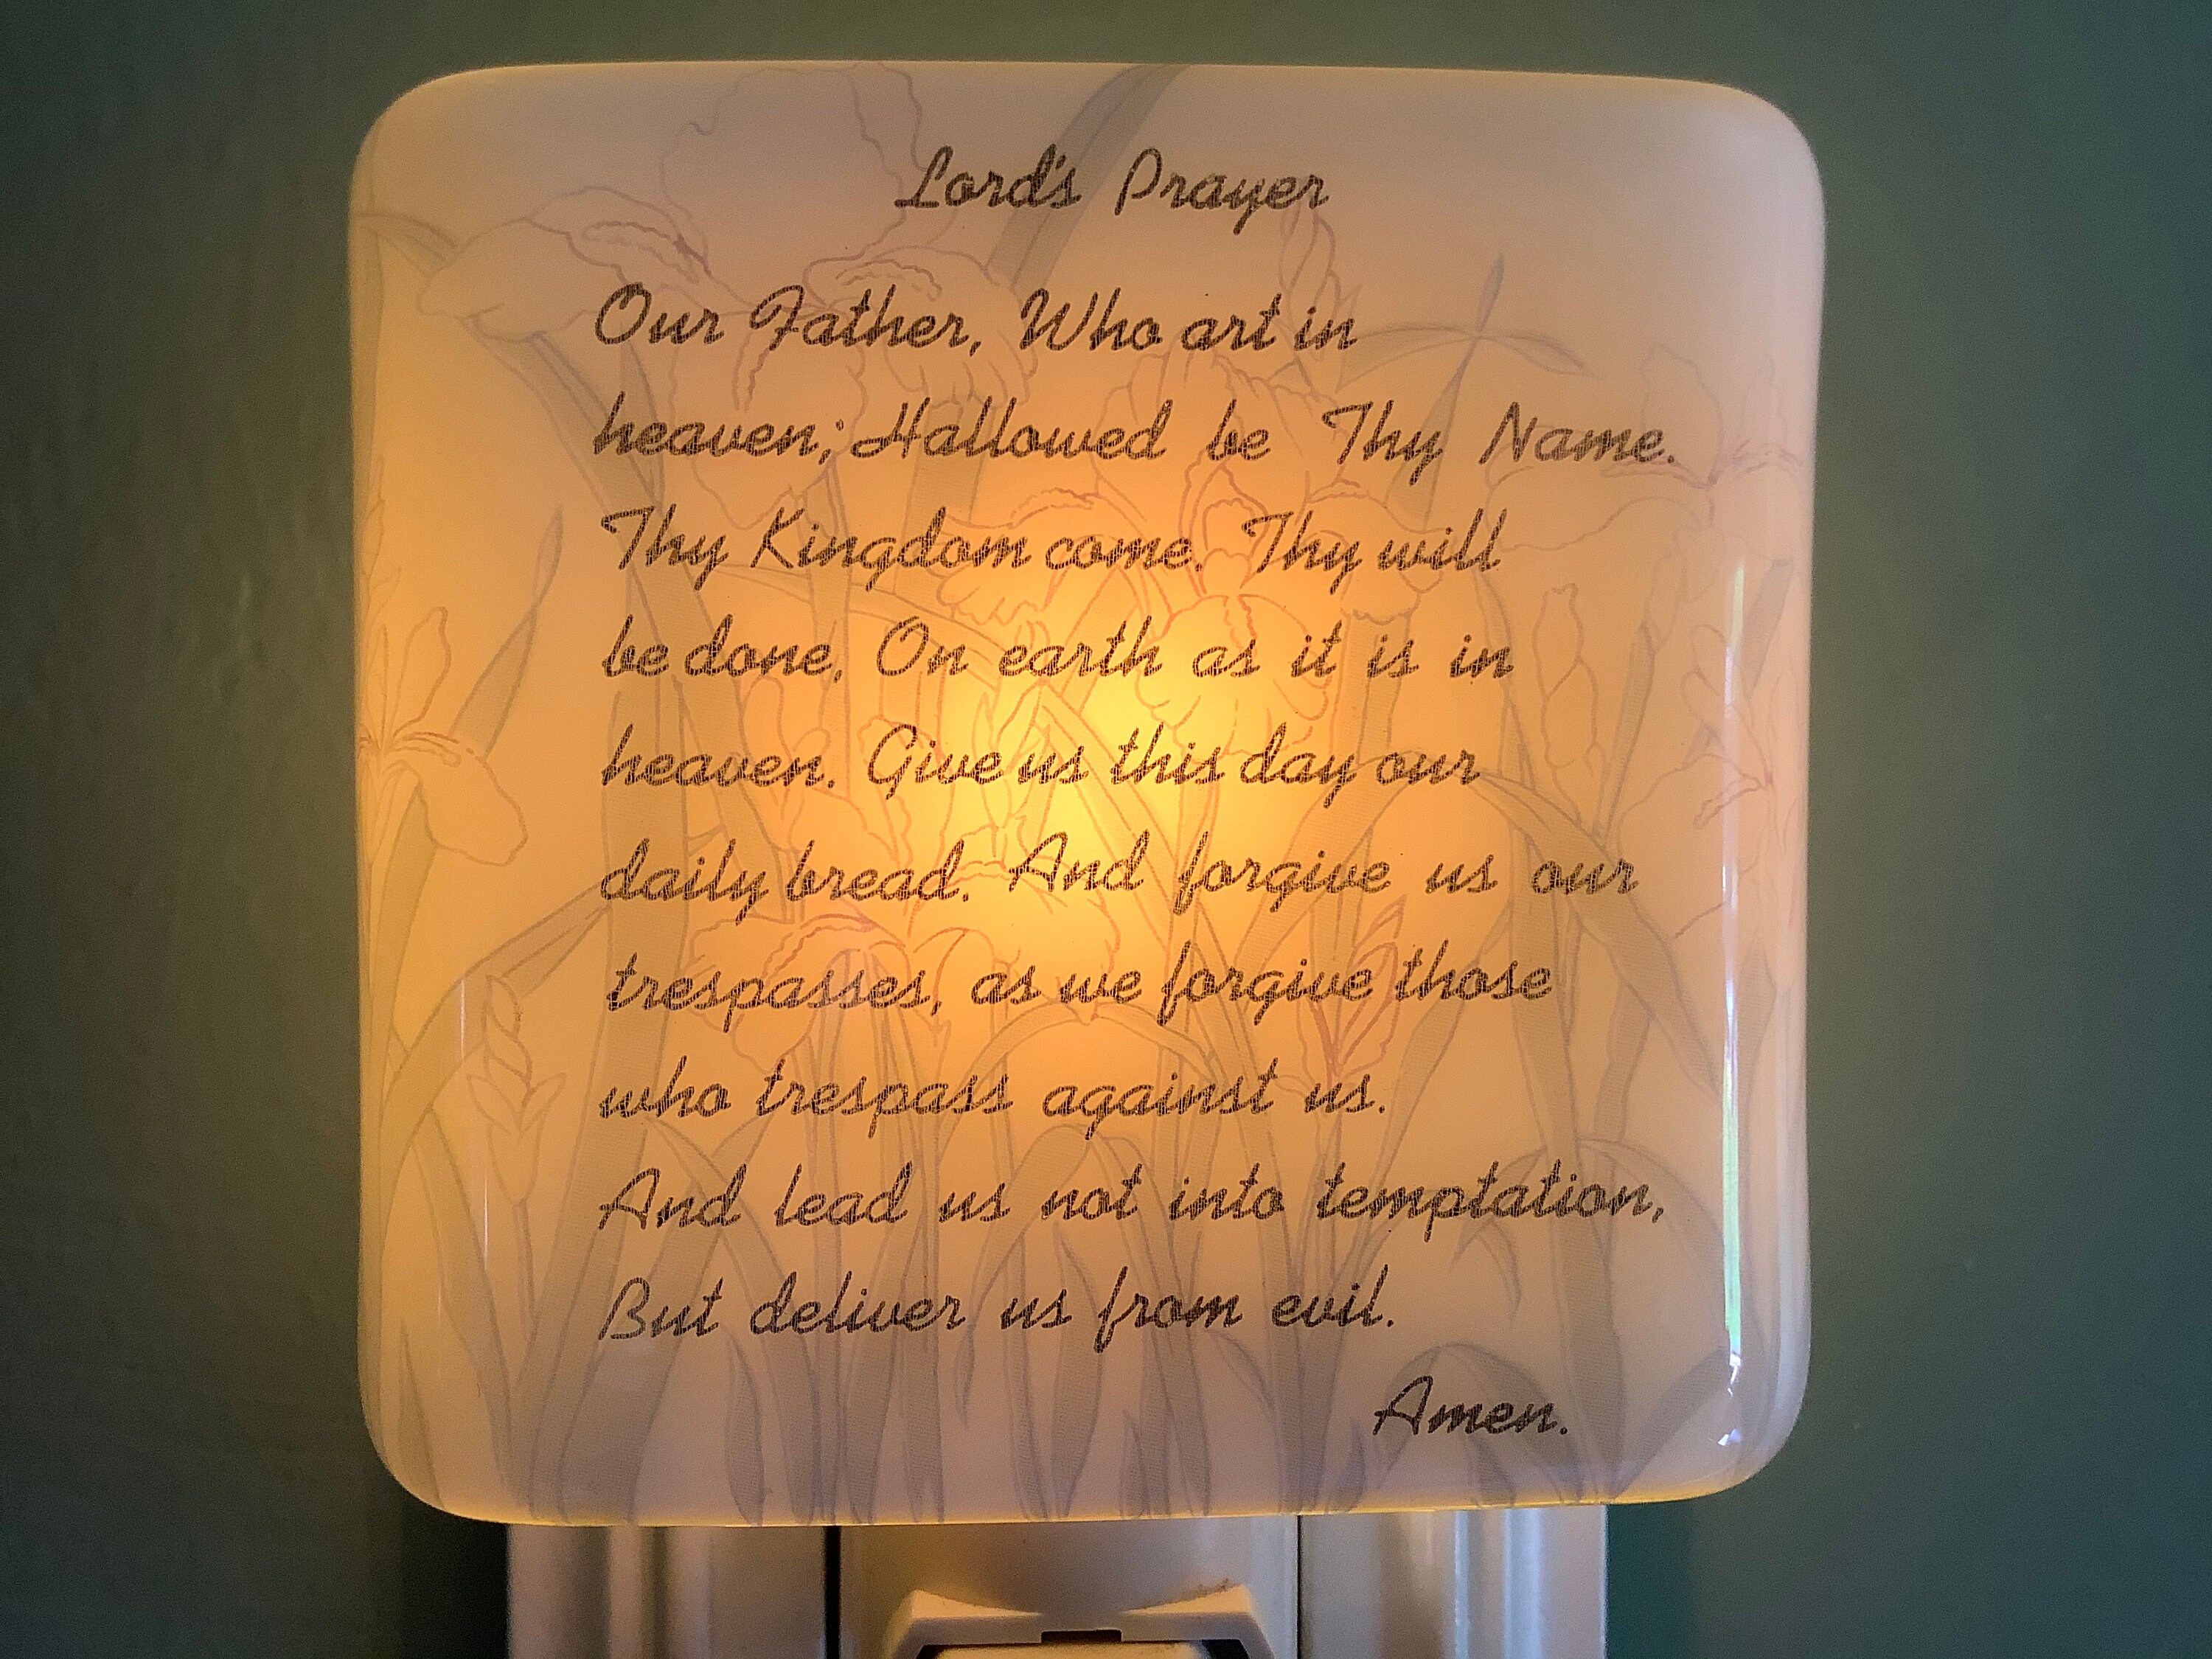 Lord's Prayer
Our Father, Who art in
heaven; Hallowed be Thy Name.
Thy Kingdom come. Thy will
be done, On earth as it is in
heaven. Give us this day our
daily bread. And forgive us our
trespasses, as we forgive those
who trespass against us.
And lead us not into temptation,
But deliver us from evil.
Amen.